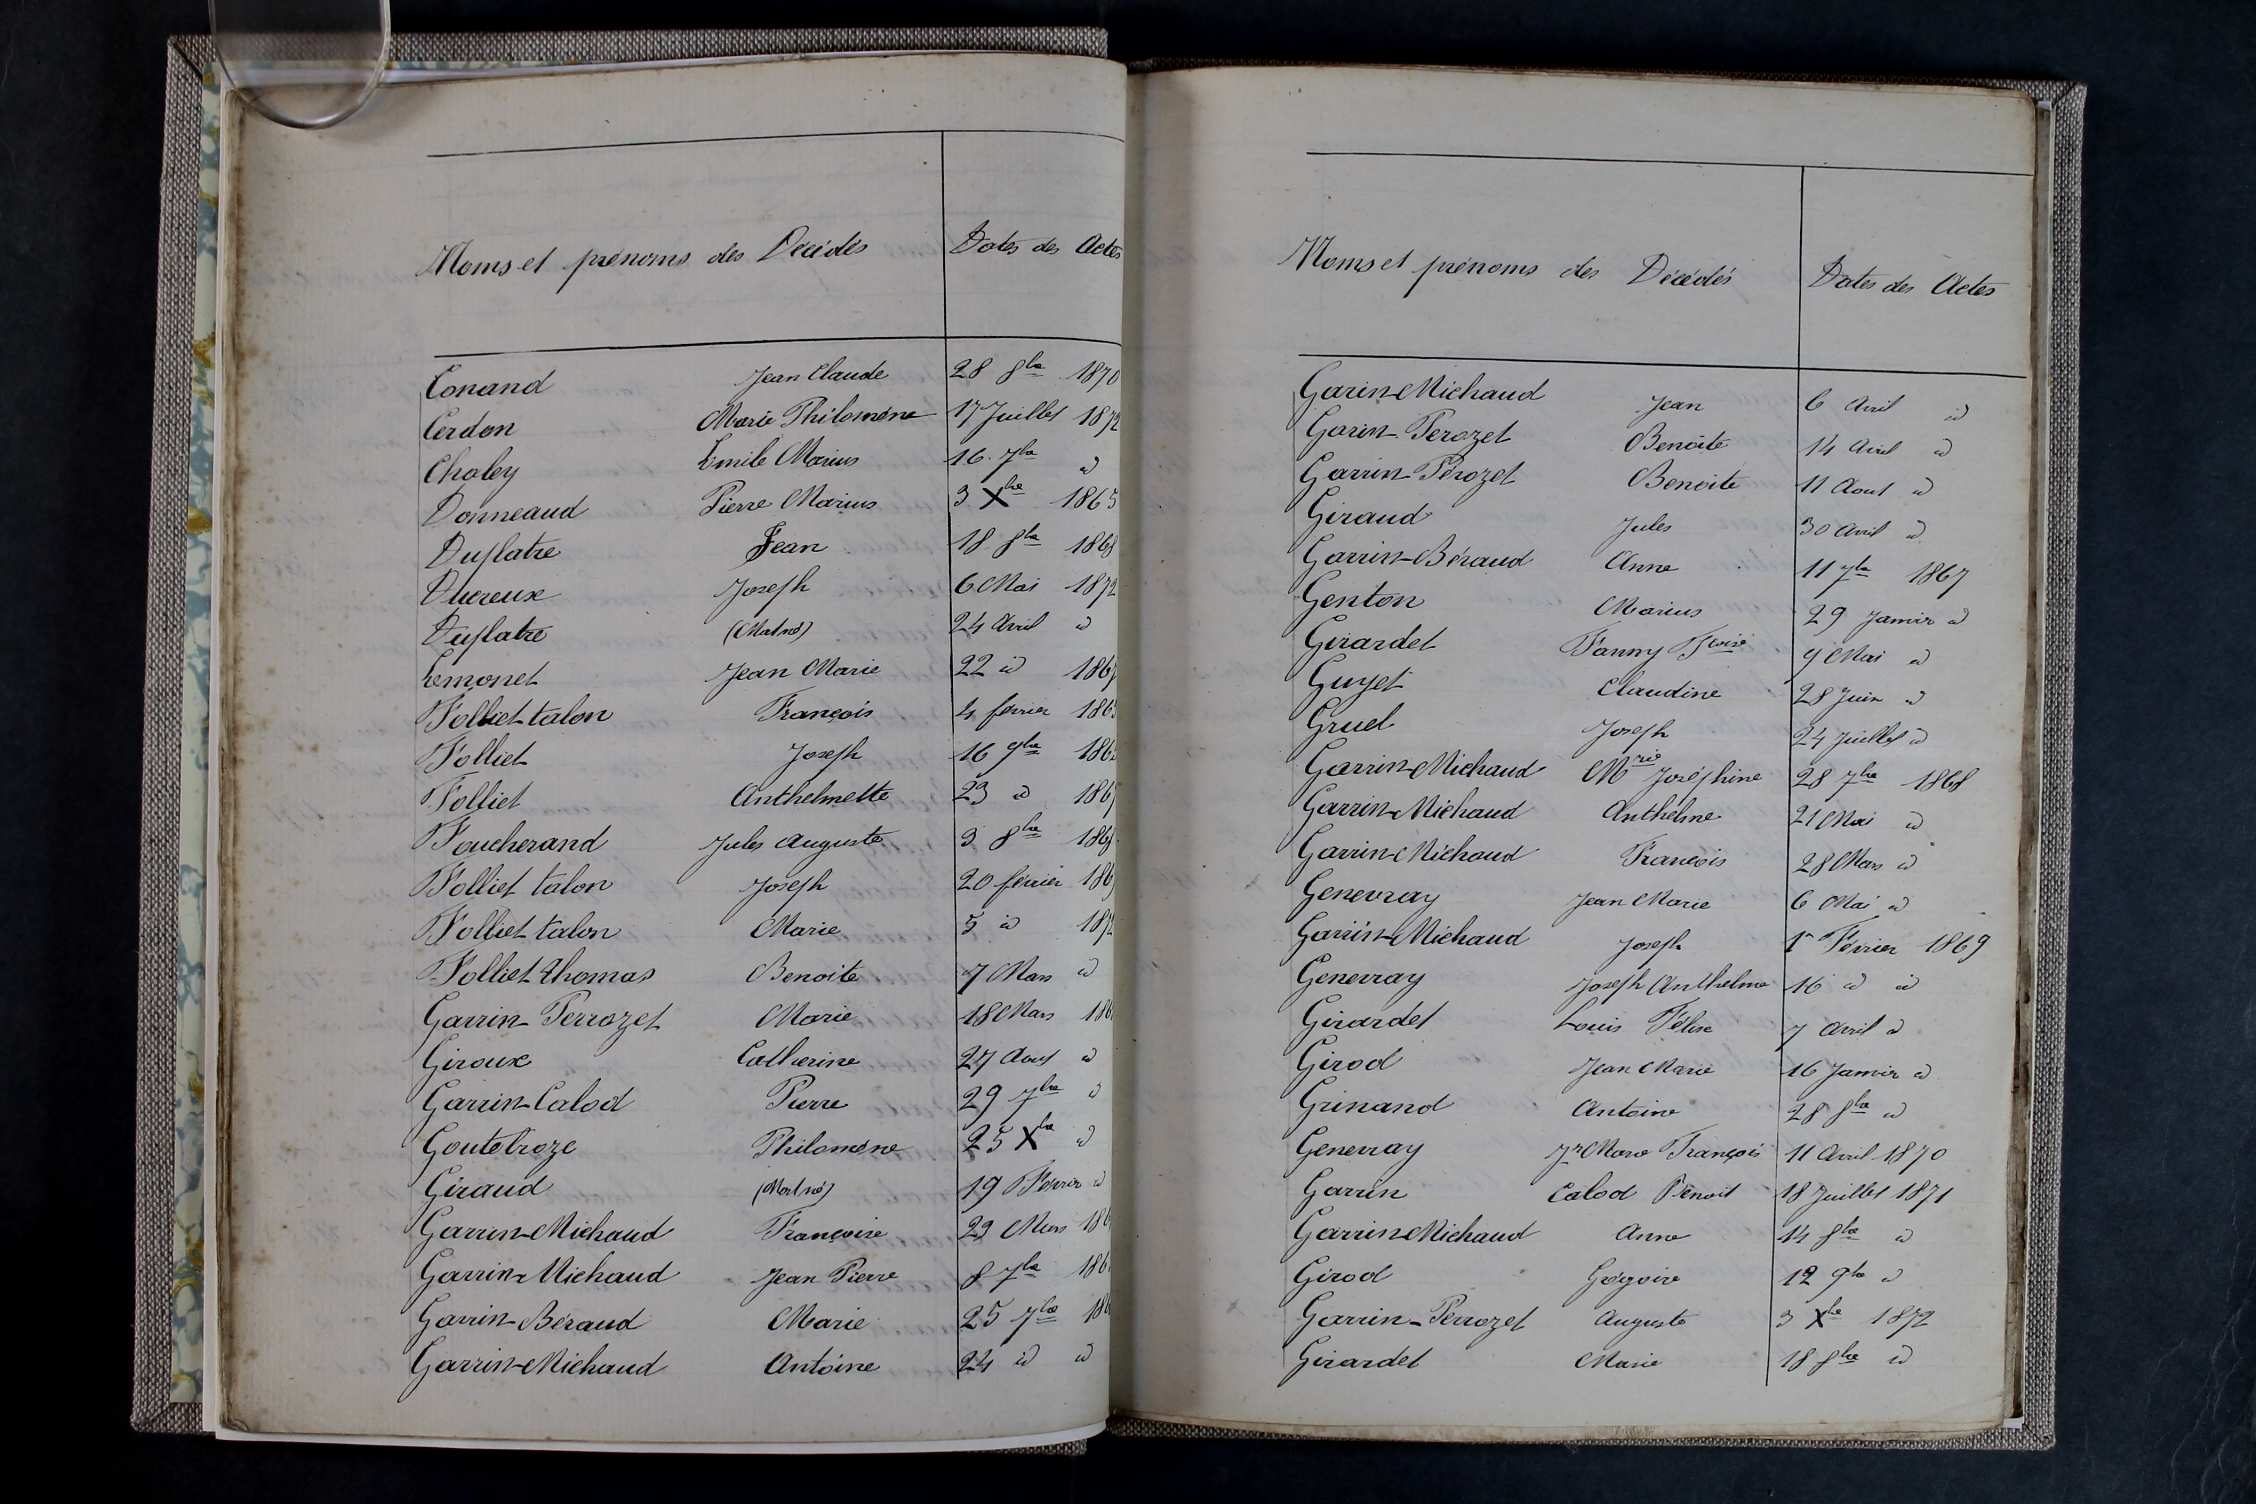 Noms et prénoms des Décédés Dates des Actes
Conand Jean Claude 28 8bre 1870
Cerdon Marie Philomène 17 Juillet 1872
Chaley Emile Marius 16 7bre id
Donneaud Pierre Marius 3 Xbre 1865
Duplatre Jean 18 8bre 1868
Ducreux Joseph 6 Mai 1872
Duplatre (Mort né) 24 Avril id
Emonet Jean Marie 22 id
Folliet talon François 4 février
Folliet Joseph 16 9bre
Folliet Anthelmette 23 id
Foucherand Jules Auguste 3 8bre 1868
Folliet talon Joseph 20 février
Folliet talon Marie 5 id 1872
Folliet thomas Benoite 7 Mars id
Garrin-Perrozet Marie 18 Mars
Giroux Catherine 27 Aout id
Garrin-Calod Pierre 29 7bre id
Goutebroze Philomène 25 Xbre id
Giraud (Mort né) 19 Février id
Garrin-Michaud Françoise 23 Mars
Garrin-Michaud Jean Pierre 8 7bre
Garrin-Béraud Marie 25 7bre
Garrin-Michaud Antoine 24 id id
Noms et prénoms des Décédés Dates des Actes
Garin-Michaud Jean 6 Avril id
Garin-Perozet Benoite 14 Avril id
Garrin-Perozet Benoite 11 Aout id
Giraud Jules 30 Avril id
Garrin-Béraud Anne 11 7bre 1867
Genton Marius 29 Janvier id
Girardet Fanny Fçoise 9 Mai id
Guyet Claudine 28 Juin id
Gruel Joseph 24 Juillet id
Garrin-Michaud Mrie Joséphine 28 7bre 1868
Garrin-Michaud Anthelme 21 Mai id
Garrin-Michaud François 28 Mars id
Genevray Jean Marie 6 Mai id
Garrin-Michaud Joseph 1er Février 1869
Genevray Joseph Anthelme 16 id id
Girardet Louis Félix 7 Avril id
Girod Jean Marie 16 Janvier id
Grinand Antoine 28 8bre id
Genevray François 11 Avril 1870
Garrin Calod Benoit 18 Juillet 1871
Garrin-Michaud Anne 14 8bre id
Girod Gégoire 12 9bre id
Garrin-Perrozet Auguste 3 Xbre 1872
Girardet Marie 18 8bre id